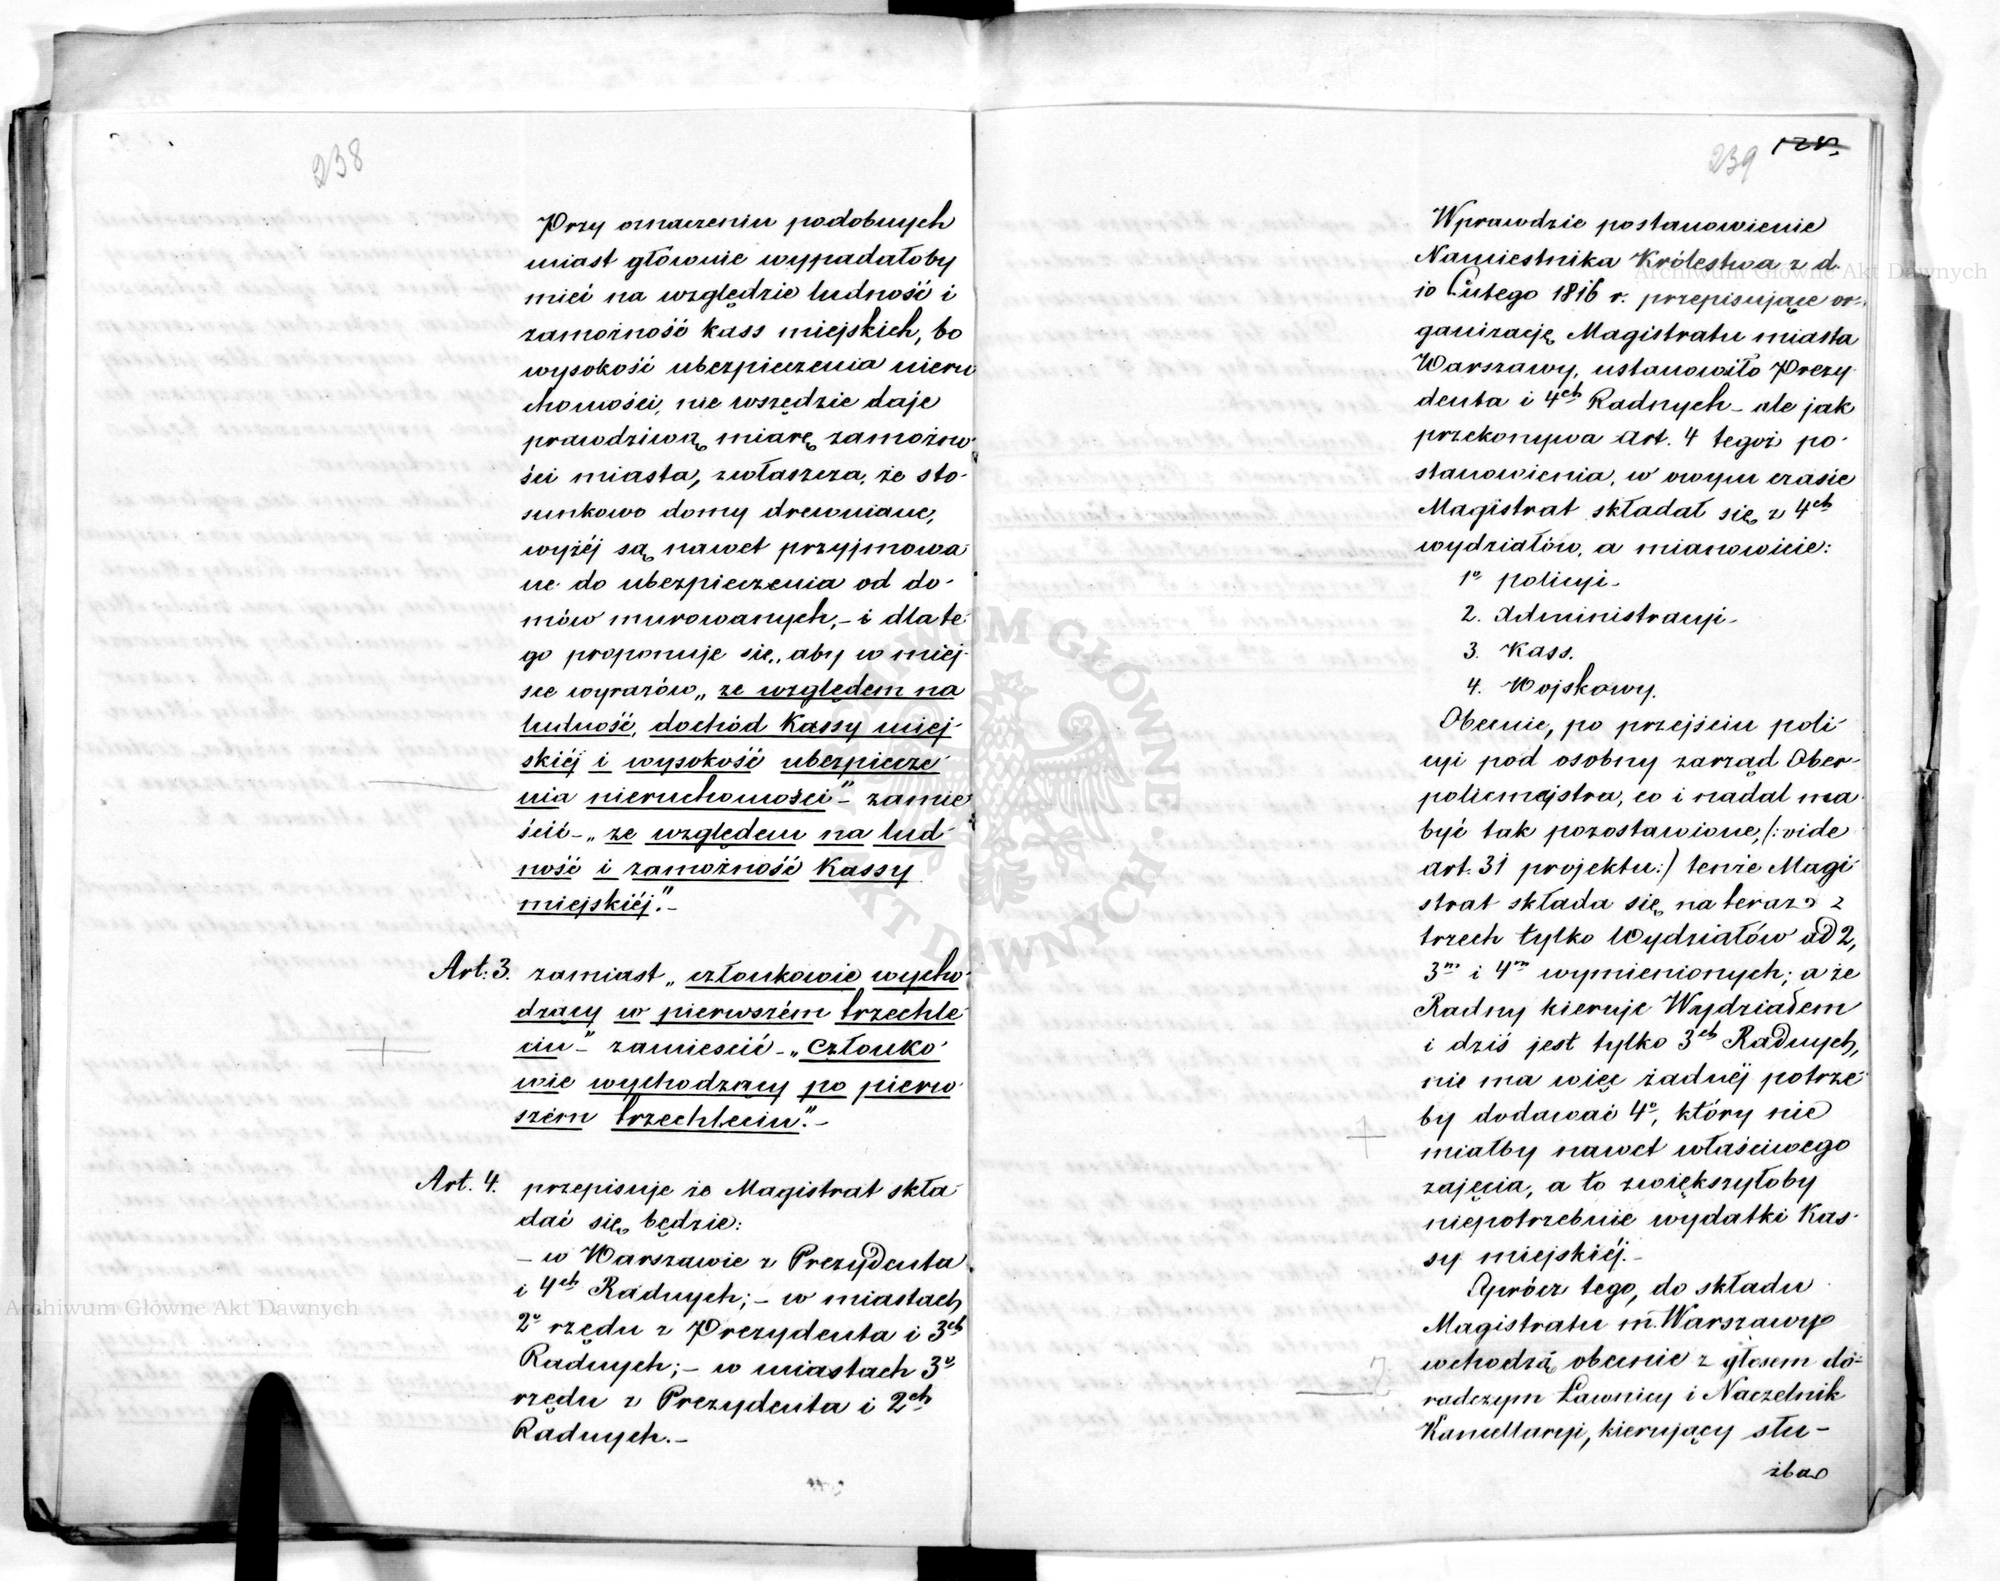 238
Przy oznaczeniu podobnych
miast głównie wypadałoby
mieć na względzie ludność i
zamożność kass miejskich, bo
wysokość ubezpieczenia nieru
chomości, nie wszędzie daje
prawdziwą miarę zamożno-
ści miasta, zwłaszcza, że sto-
sunkowo domy drewniane,
wyżej są nawet przyjmowa
ne do ubezpieczenia od do-
mów murowanych,- i dla te-
go proponuje się, aby w miej-
sce wyrazów „ze względem na
ludność, dochód Kassy miej-
skiéj i wysokość ubezpiecze-
nia nieruchomości"- zamie
ścić- „ze względem na lud-
ność i zamożność Kassy
miejskiéj".-
Art: 3. zamiast „członkowie wycho-
dzący w pierwszém trzechle-
ciu"- zamieścić- „Członko-
wie wychodzący po pierw-
szém trzechleciu".-
Art. 4. przepisuje że Magistrat skła-
dać się będzie:
- w Warszawie z Prezydenta
i 4ch Radnych;- w miastach
2o rzędu z Prezydenta i 3ch
Radnych;- w miastach 3o
rzędu z Prezydenta i 2ch
Radnych.-
239
Wprawdzie postanowienie
Namiestnika Królestwa z d.
10 Lutego 1816 r. przepisujące or-
ganizację Magistratu miasta
Warszawy, ustanowiło Prezy-
denta i 4ch Radnych- ale jak
przekonywa Art. 4 tegoż po-
stanowienia, w owym czasie
Magistrat składał się z 4ch
wydziałów, a mianowicie:
1o policyi-
2. Administracyi-
3. Kass.
4. Wojskowy.
Obecnie, po przejściu poli-
cyi pod osobny zarząd Ober-
policmajstra, co i nadal ma
być tak pozostawione, /:vide
Art. 31 projektu:/ tenże Magi-
strat składa się na teraz z
trzech tylko Wydziałów ad 2,
3m i 4m wymienionych; a że
Radny kieruje Wydziałem
i dziś jest tylko 3ch Radnych,
nie ma więc żadnéj potrze-
by dodawać 4o, który nie
miałby nawet właściwego
zajęcia, a to zwiększyłoby
niepotrzebnie wydatki Kas-
sy miejskiéj.-
Oprócz tego, do składu
Magistratu m. Warszawy
wchodzą obecnie z głosem do-
radczym Ławnicy i Naczelnik
Kancellaryi, kierujący słu-
żba
Archiwum Główne Akt Dawnych
Archiwum Główne Akt Dawnych